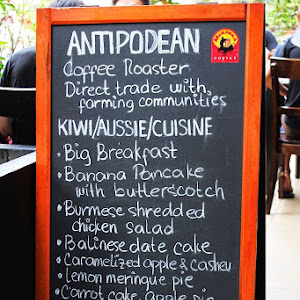 ANTIPODEAN
Coffee Roaster
Direct trade with
farming communities
KIWI/AUSSIE/CUISINE
• Big Breakfast
• Banana Pancake
with butterscotch
• Burmese shredded
chicken salad
• Balinese date cake
• Caramelized apple & cashew
• Lemon meringue pie
• Carrot cake, apple pie
coffee